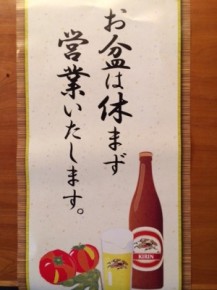 お盆は休まず
営業いたします。
KIRIN